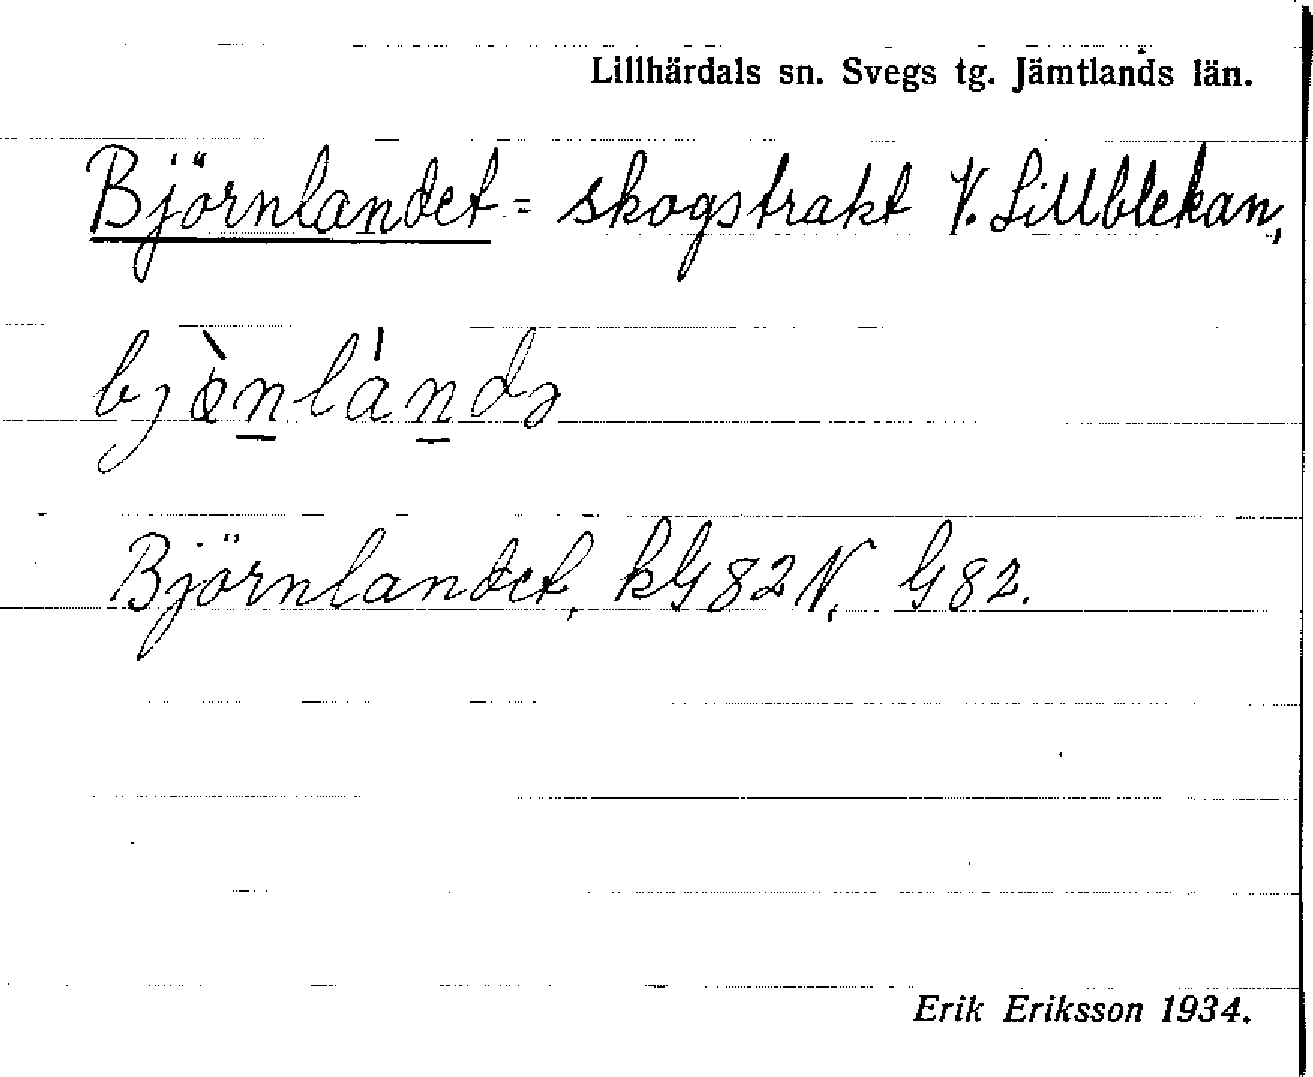 Lillhärdals sn. Svegs tg. Jämtlands län.
Björnlandet = skogstrakt V. Lillblekan,
Björnlandet, kG 82 N, G 82.
Erik Eriksson 1934.